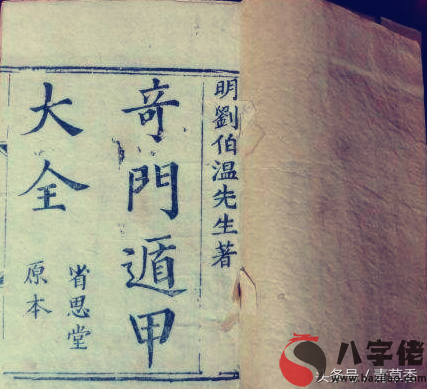 明劉伯温先生著
竒門遁甲
大全
省思堂
原本
八字佬
头条号 /